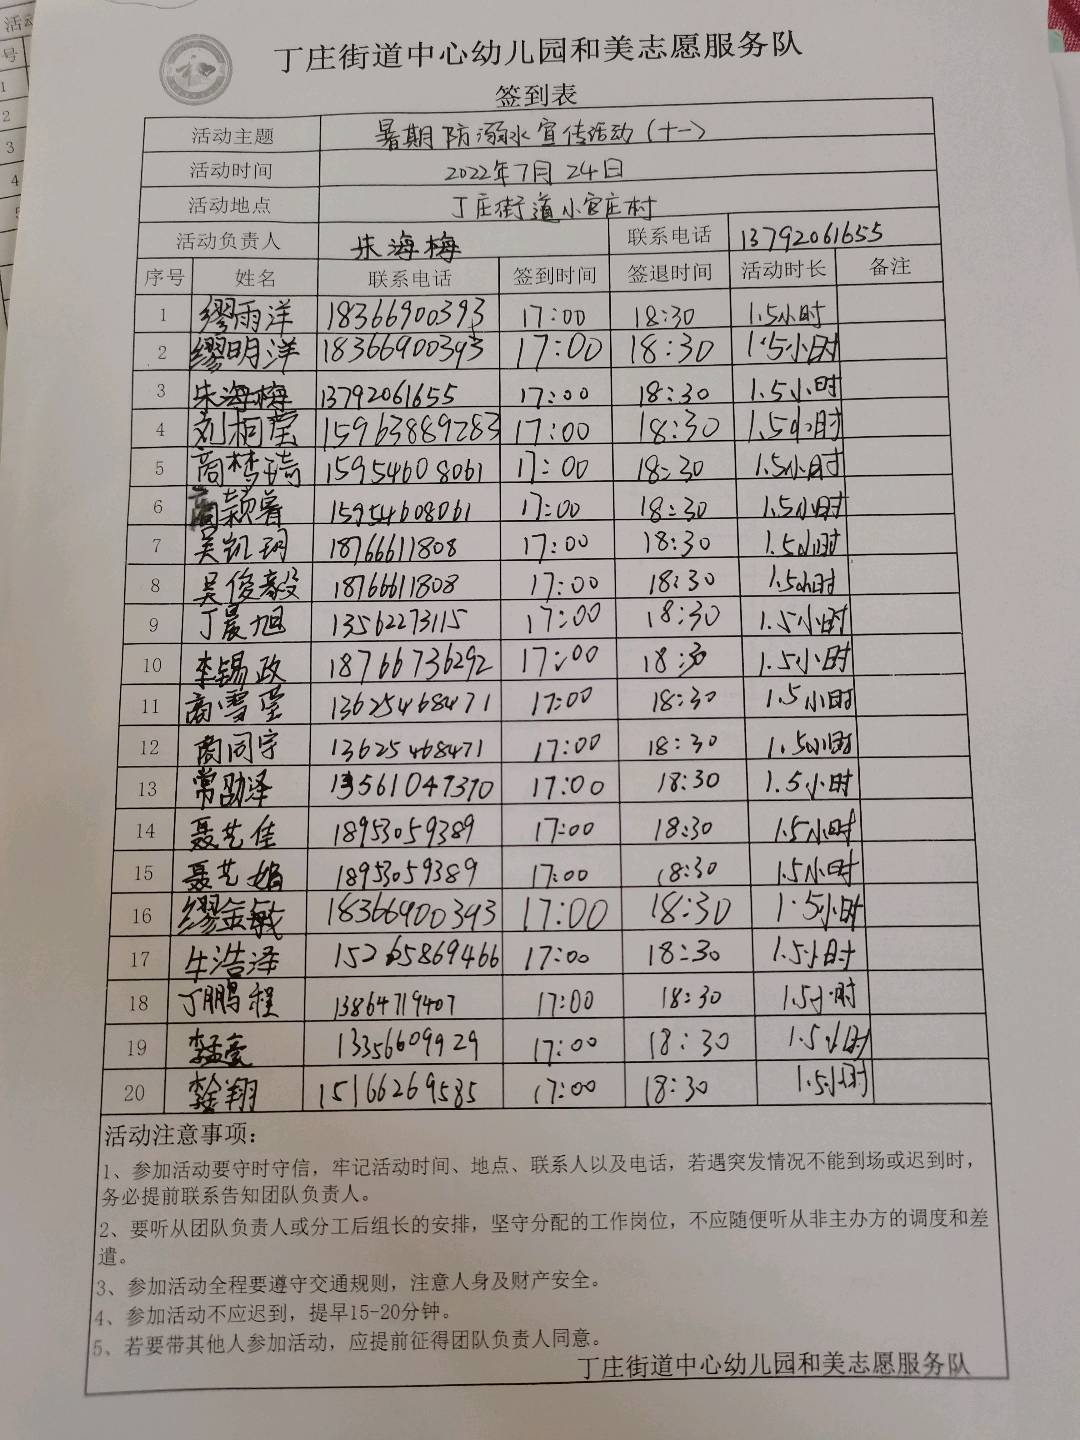 丁庄街道中心幼儿园和美志愿服务队
签到表
活动主题 暑期防溺水宣传活动(十一)
活动时间 2022年7月24日
活动地点 丁庄街道小官庄村
活动负责人 朱海梅 联系电话 13792061655
序号 姓名 联系电话 签到时间 签退时间 活动时长 备注
1 缪雨洋 18366900393 17:00 18:30 1.5小时
2 缪明洋 18366900393 17:00 18:30 1.5小时
3 朱海梅 13792061655 17:00 18:30 1.5小时
4 刘桐莹 15963889283 17:00 18:30 1.5小时
5 商梦琦 15954608061 17:00 18:30 1.5小时
6 商颖睿 15954608061 17:00 18:30 1.5小时
7 吴凯玥 18766611808 17:00 18:30 1.5小时
8 吴俊毅 18766611808 17:00 18:30 1.5小时
9 丁晨旭 13562273115 17:00 18:30 1.5小时
10 李锡政 18766736292 17:00 18:30 1.5小时
11 商雪莹 13625468471 17:00 18:30 1.5小时
12 商同宇 13625468471 17:00 18:30 1.5小时
13 常劭泽 13561047370 17:00 18:30 1.5小时
14 聂艺佳 18953059389 17:00 18:30 1.5小时
15 聂艺娟 18953059389 17:00 18:30 1.5小时
16 缪金敏 18366900393 17:00 18:30 1.5小时
17 牛浩泽 15265869466 17:00 18:30 1.5小时
18 丁鹏程 13864719407 17:00 18:30 1.5小时
19 李孟豪 13356609929 17:00 18:30 1.5小时
20 李金翔 15166269585 17:00 18:30 1.5小时
活动注意事项:
1、参加活动要守时守信，牢记活动时间、地点、联系人以及电话，若遇突发情况不能到场或迟到时，
务必提前联系告知团队负责人。
2、要听从团队负责人或分工后组长的安排，坚守分配的工作岗位，不应随便听从非主办方的调度和差
遣。
3、参加活动全程要遵守交通规则，注意人身及财产安全。
4、参加活动不应迟到，提早15-20分钟。
5、若要带其他人参加活动，应提前征得团队负责人同意。
丁庄街道中心幼儿园和美志愿服务队